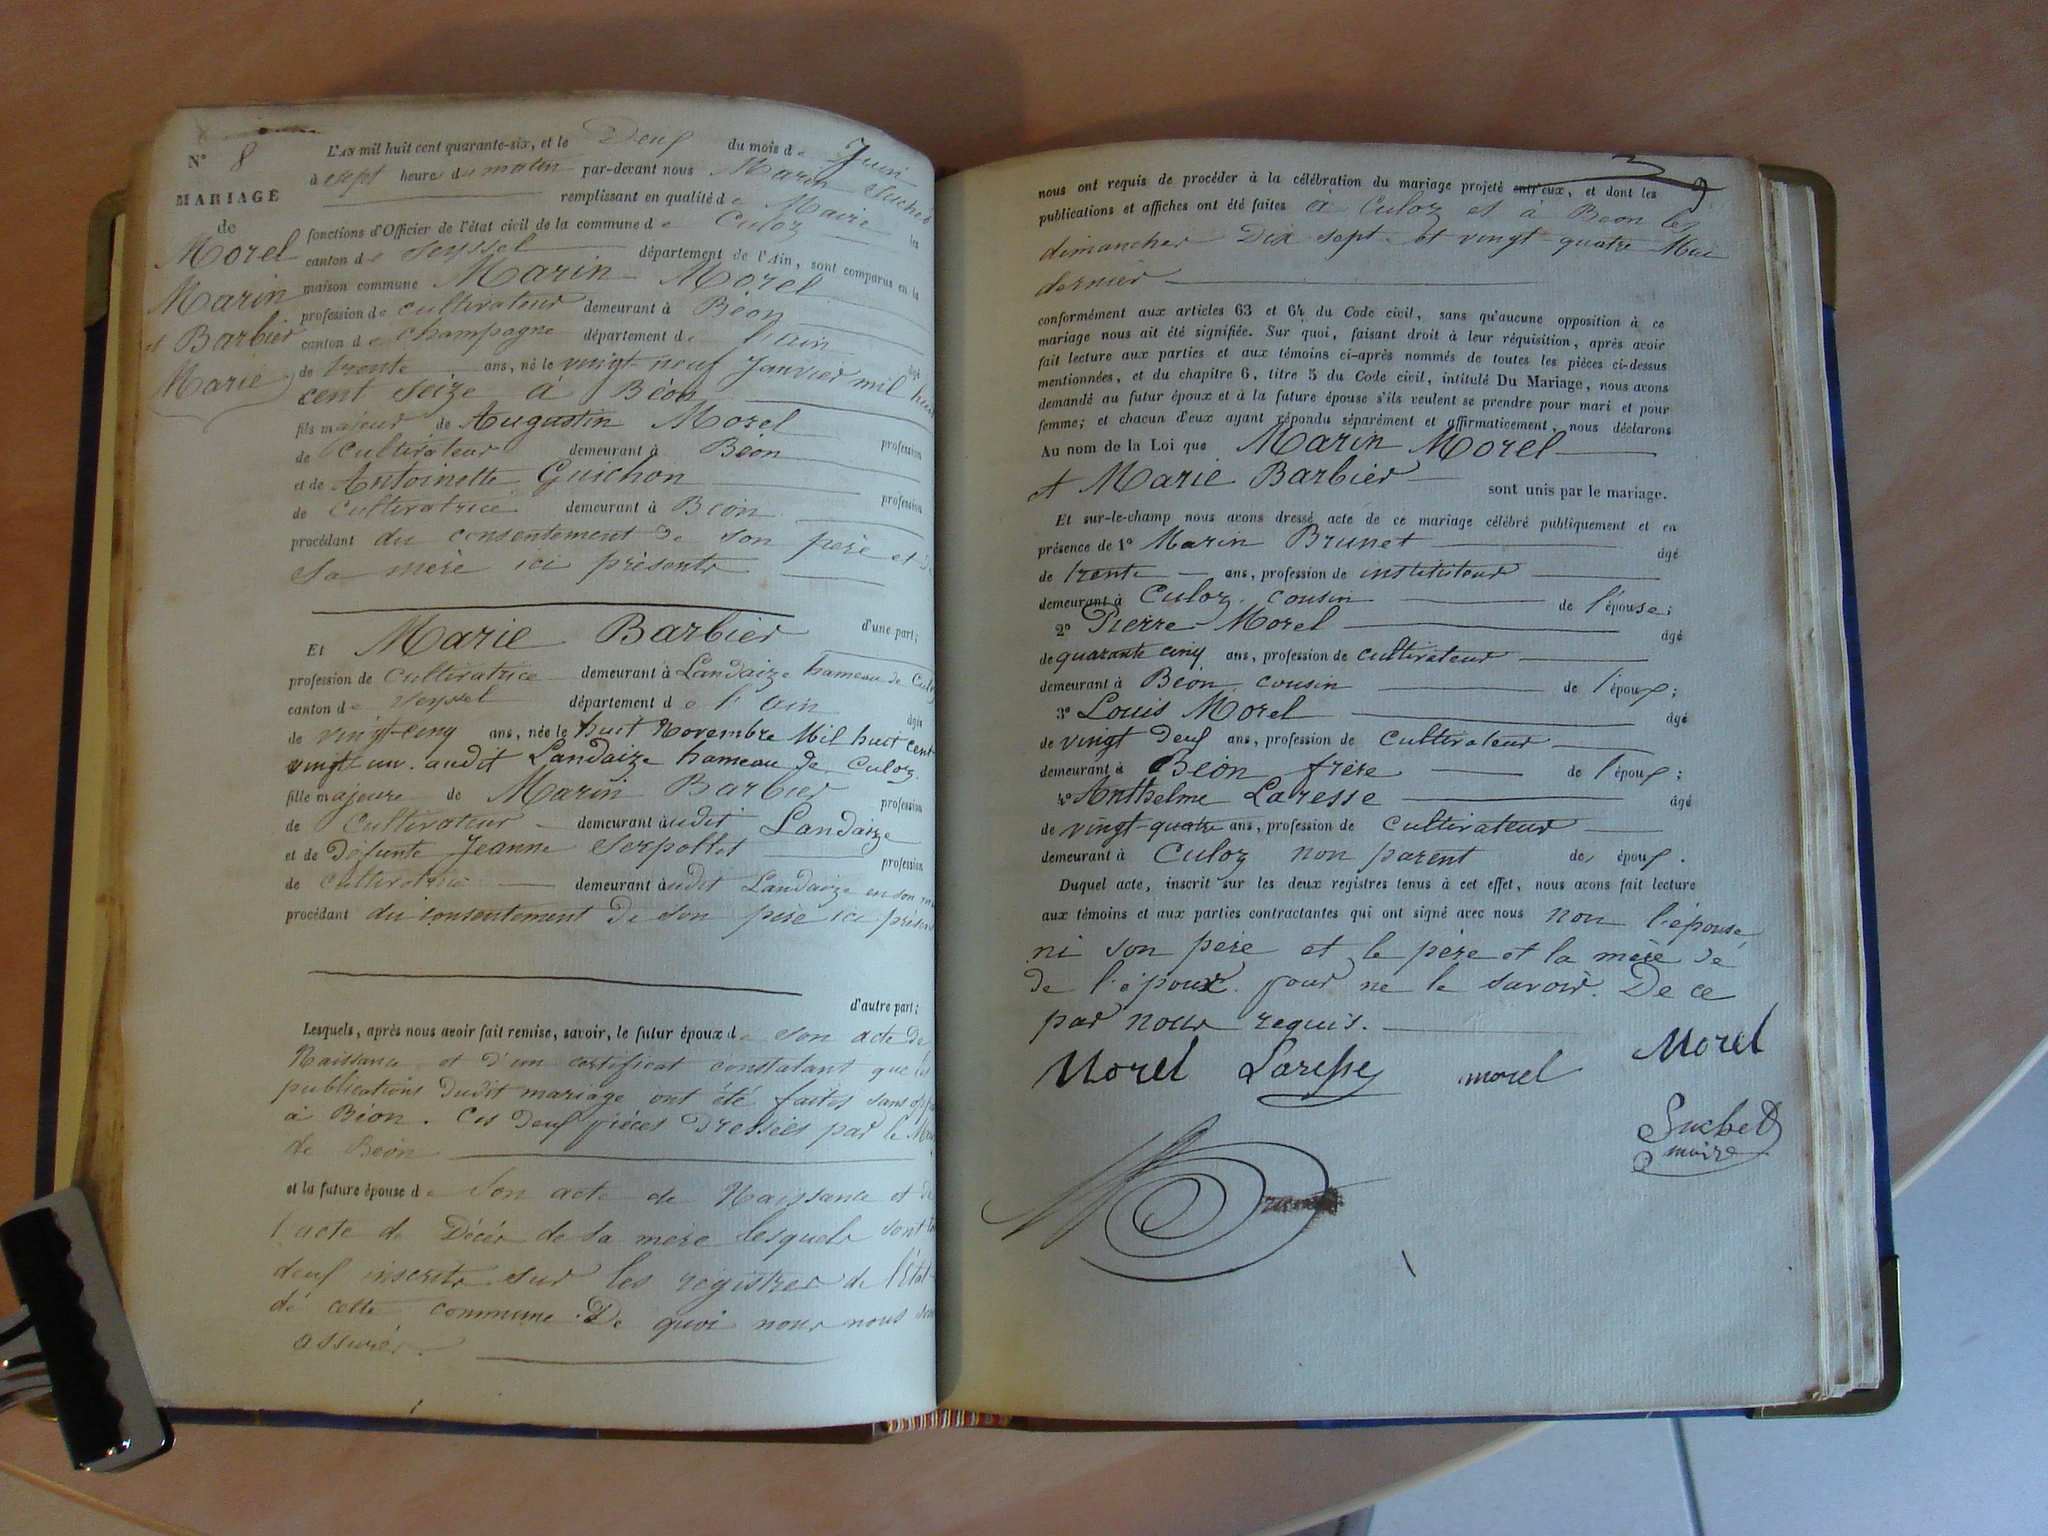 N° 8
MARIAGE
de
Morel
Marin
et Barbier
Marie
L'AN mil huit cent quarante-six, et le Deux du mois de Juin
à sept heure du matin par-devant nous Marin Suchet
remplissant en qualité de Maire les
fonctions d'Officier de l'état civil de la commune de Culoz
canton de Seyssel département de l'Ain, sont comparus en la
maison commune Marin Morel
profession de cultivateur demeurant à Béon
canton de champagne département de l'ain âgé
de trente ans, né le vingt neuf Janvier mil huit
cent seize à Béon
fils majeur de Augustin Morel profession
de Cultivateur demeurant à Béon
et de Antoinette Guichon profession
de Cultivatrice demeurant à Béon
procédant du consentement de son père et de
sa mère ici présents
d'une part;
Et Marie Barbier
profession de Cultivatrice demeurant à Landaize hameau de Culoz
canton de Seyssel département de l'ain âgée
de vingt-cinq ans, née le huit Novembre Mil huit cent
vingt un audit Landaize hameau de Culoz
fille majeure de Marin Barbier profession
de Cultivateur demeurant audit Landaize
et de défunte Jeanne Serpollet profession
de cultivatrice demeurant audit Landaize en son
procédant du consentement de son père ici présent
d'autre part;
Lesquels, après nous avoir fait remise, savoir, le futur époux de son acte de
Naissance et d'un certificat constatant que les
publications dudit mariage ont été faites sans
à Béon. Ces deux pièces dressées par le
de Béon
et la future épouse de son acte de Naissance et de
l'acte de Décès de sa mère lesquels sont
deux inscrits sur les registres de l'État
de cette commune. De quoi nous nous
assurés.
nous ont requis de procéder à la célébration du mariage projeté entr'eux, et dont les
publications et affiches ont été faites à Culoz et à Béon les
dimanches Dix sept et vingt quatre Mai
dernier
conformément aux articles 63 et 64 du Code civil, sans qu'aucune opposition à ce
mariage nous ait été signifiée. Sur quoi, faisant droit à leur réquisition, après avoir
fait lecture aux parties et aux témoins ci-après nommés de toutes les pièces ci-dessus
mentionnées, et du chapitre 6, titre 5 du Code civil, intitulé Du Mariage, nous avons
demandé au futur époux et à la future épouse s'ils veulent se prendre pour mari et pour
femme; et chacun d'eux ayant répondu séparément et affirmativement, nous déclarons
Au nom de la Loi que Marin Morel
et Marie Barbier sont unis par le mariage.
Et sur-le-champ nous avons dressé acte de ce mariage célébré publiquement et en
présence de 1° Marin Brunet âgé
de trente ans, profession de instituteur
demeurant à Culoz cousin de l'épouse;
2° Pierre Morel âgé
de quarante cinq ans, profession de cultivateur
demeurant à Béon cousin de l'époux;
3° Louis Morel âgé
de vingt deux ans, profession de cultivateur
demeurant à Béon frère de l'époux;
4° Anthelme Laresse âgé
de vingt-quatre ans, profession de cultivateur
demeurant à Culoz non parent des époux.
Duquel acte, inscrit sur les deux registres tenus à cet effet, nous avons fait lecture
aux témoins et aux parties contractantes qui ont signé avec nous non l'épouse
ni son père et le père et la mère de
de l'époux pour ne le savoir. De ce
par nous requis.
Morel Laresse morel Morel
Suchet
maire